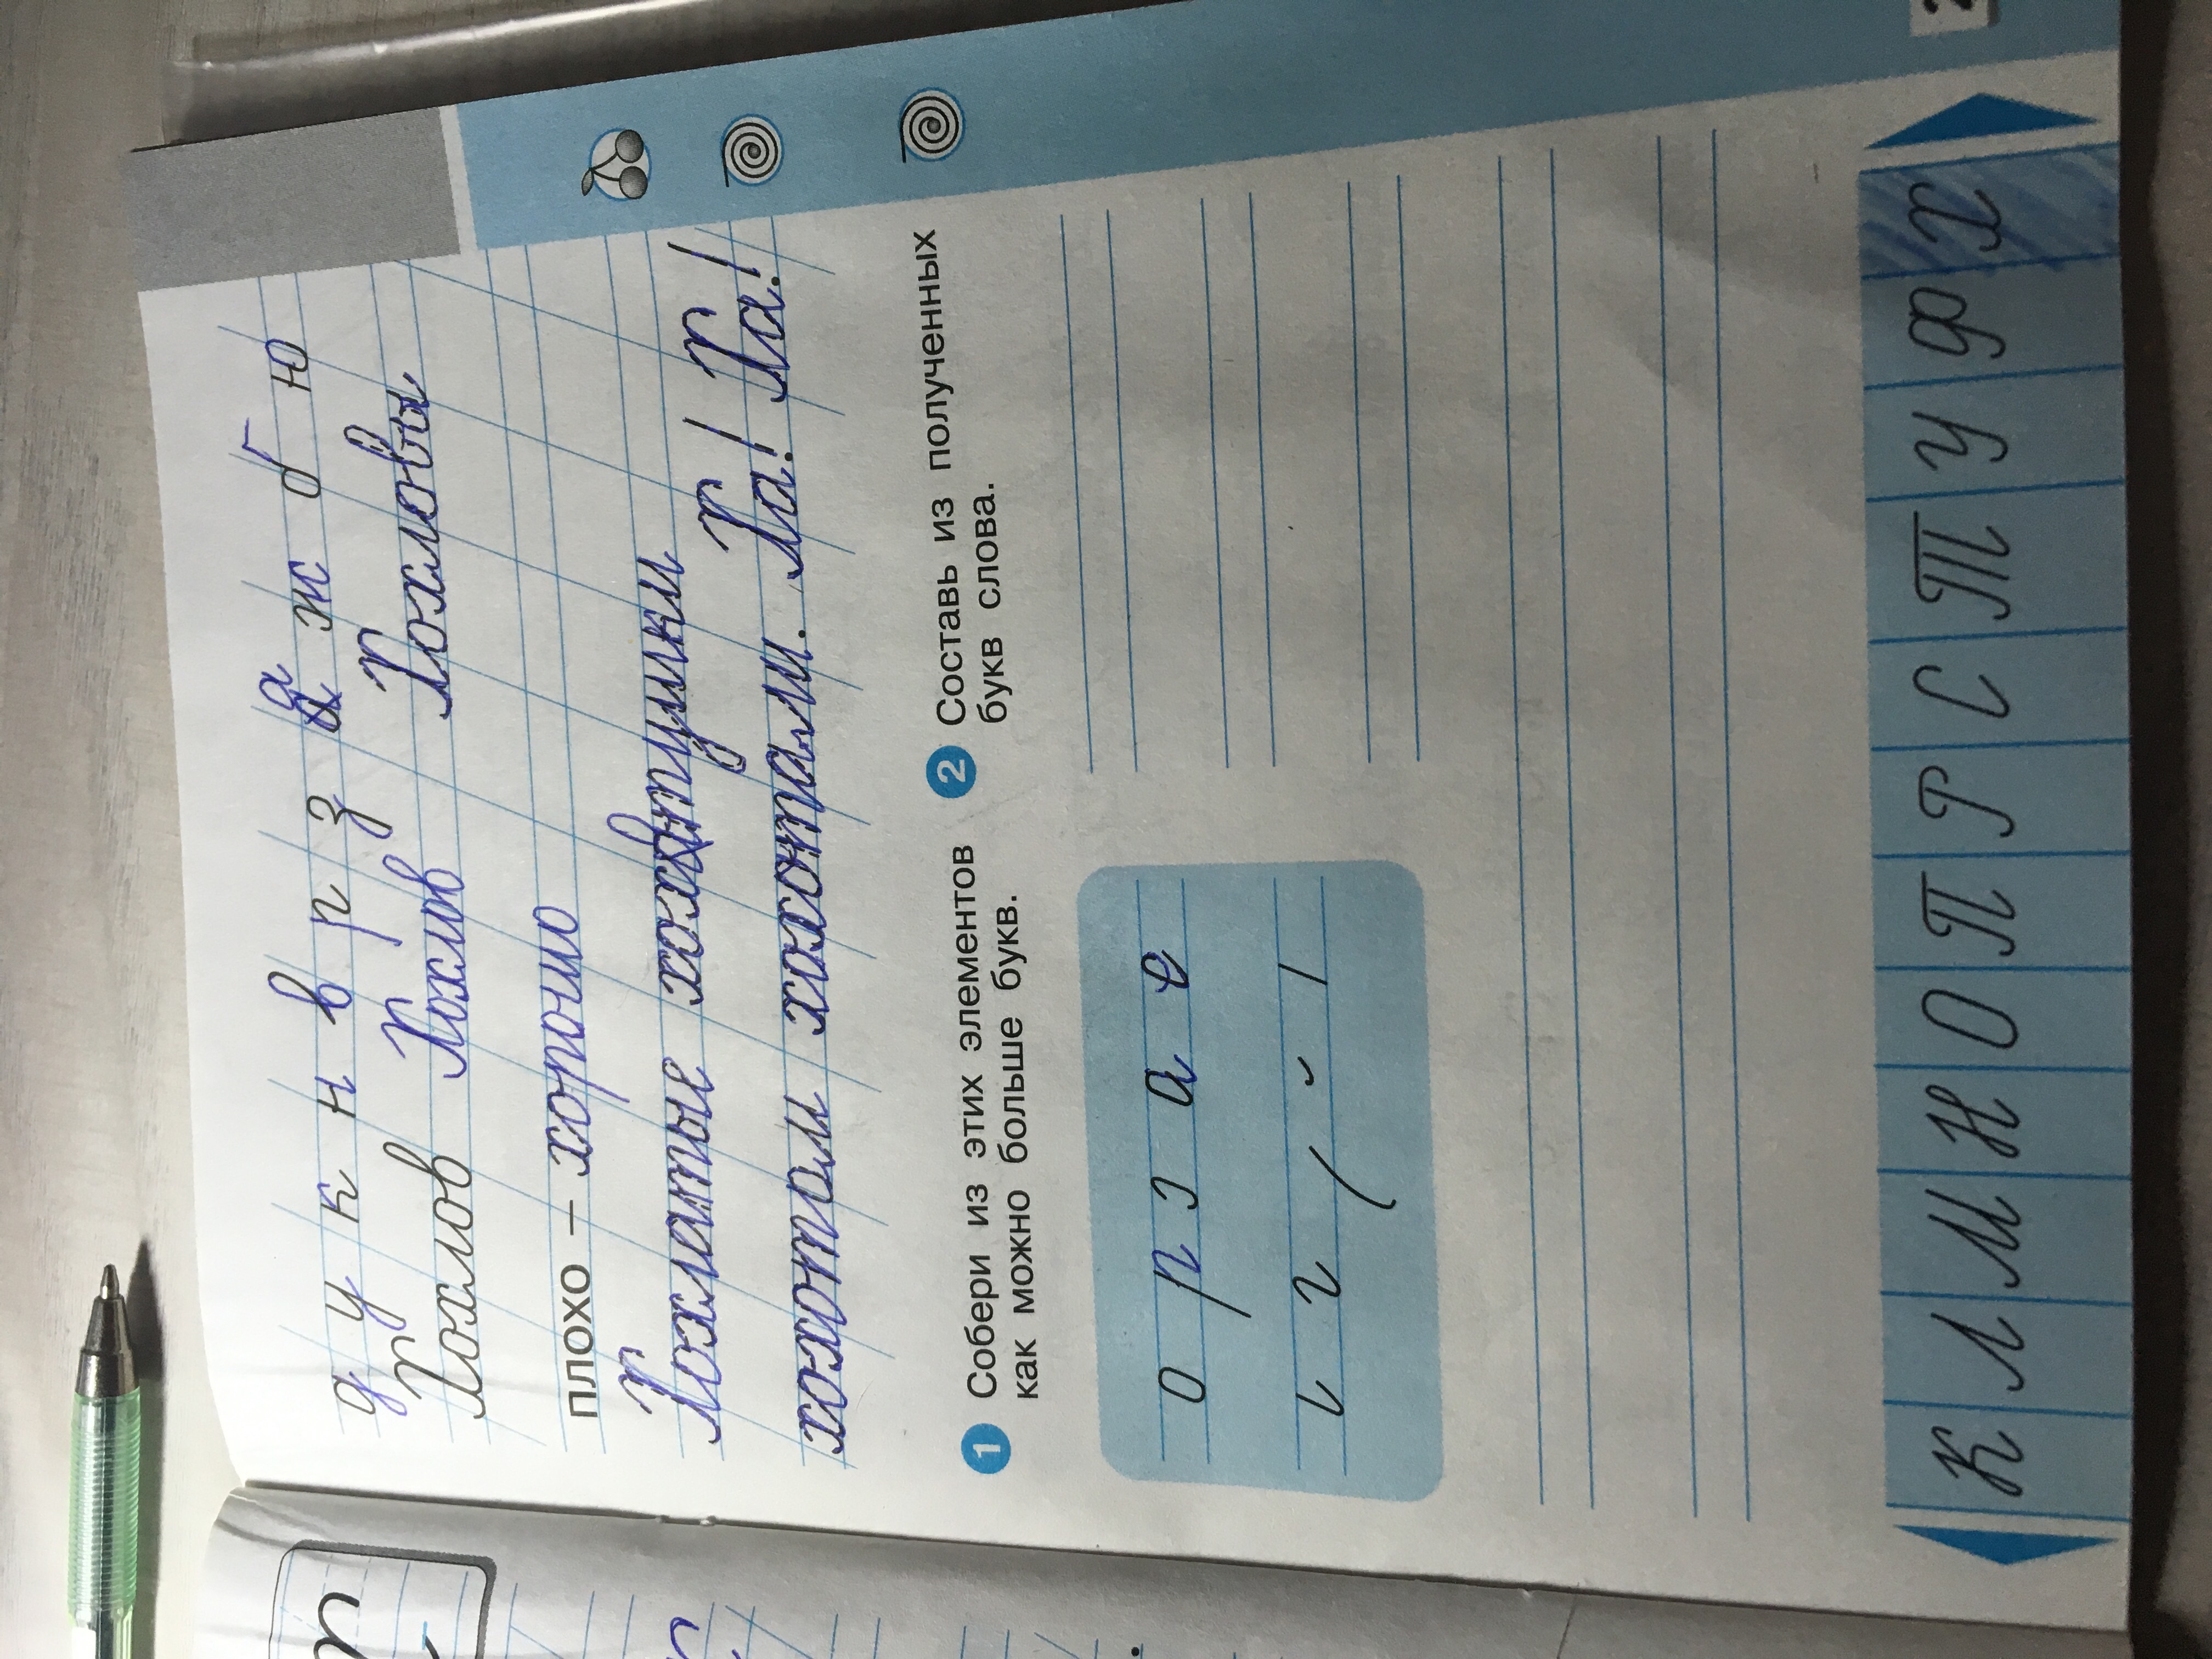 д у к н в р з а ж б ю
Хохлов Хохлов Хохловы
плохо – хорошо
Хохлатые хохотушки
хохотом хохотали. Ха! Ха!
Ха! Ха!
1 Собери из этих элементов
как можно больше букв.
2 Составь из полученных
букв слова.
К Л М Н О П Р С Т У Ф Х